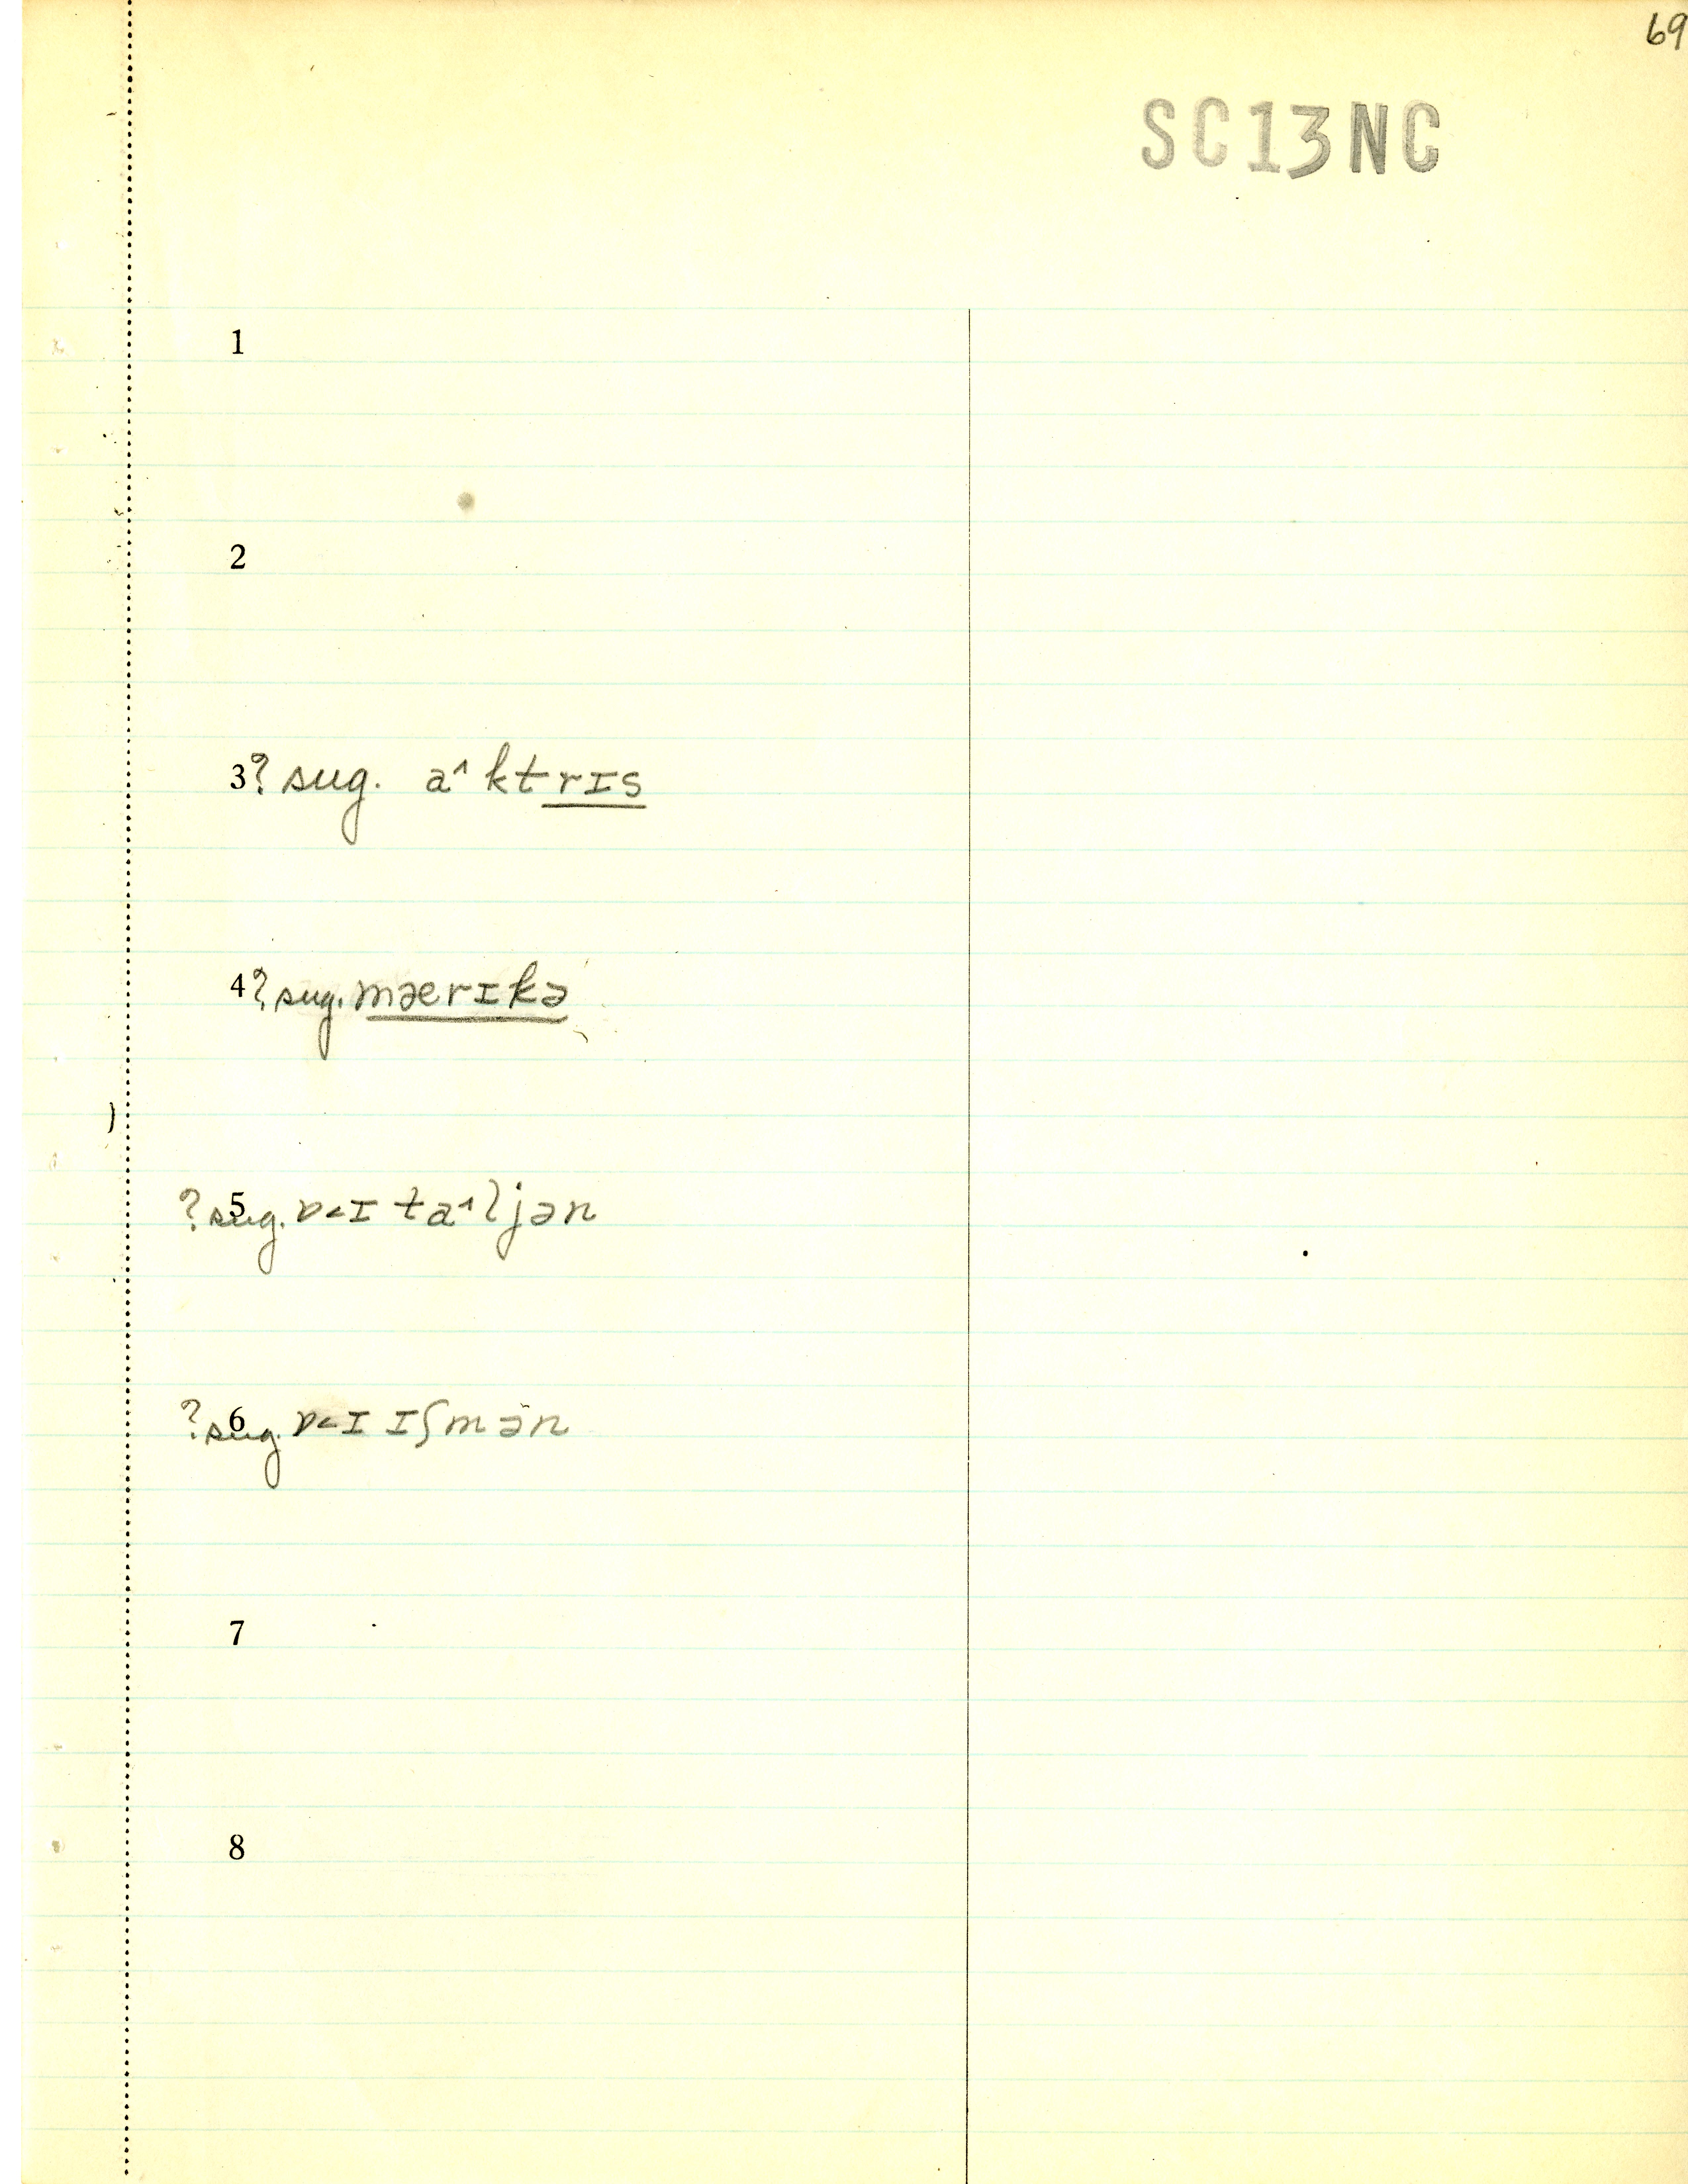 69
SC13NC
1
2
3 ? sug. a˄ktrɪs
4 ? sug. mərɪkə
5 ? sug. ɒ˂ɪ ta˄ljən
6 ? sug. ɒ˂ɪ ɪʃmən
7
8